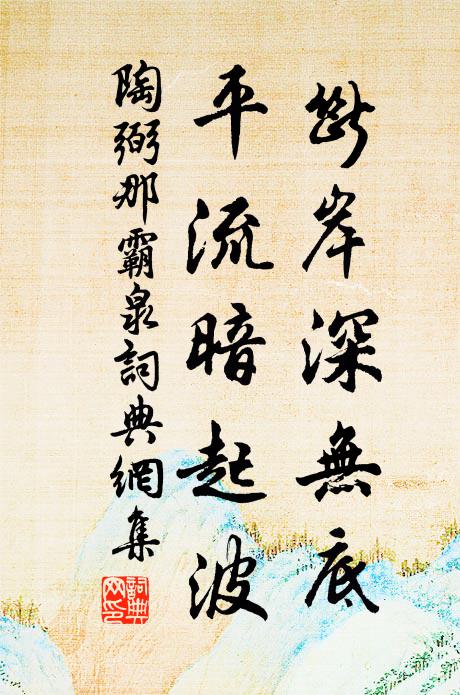 斷岸深無底
平流暗起波
陶弼那霸泉詞典網集
詞典